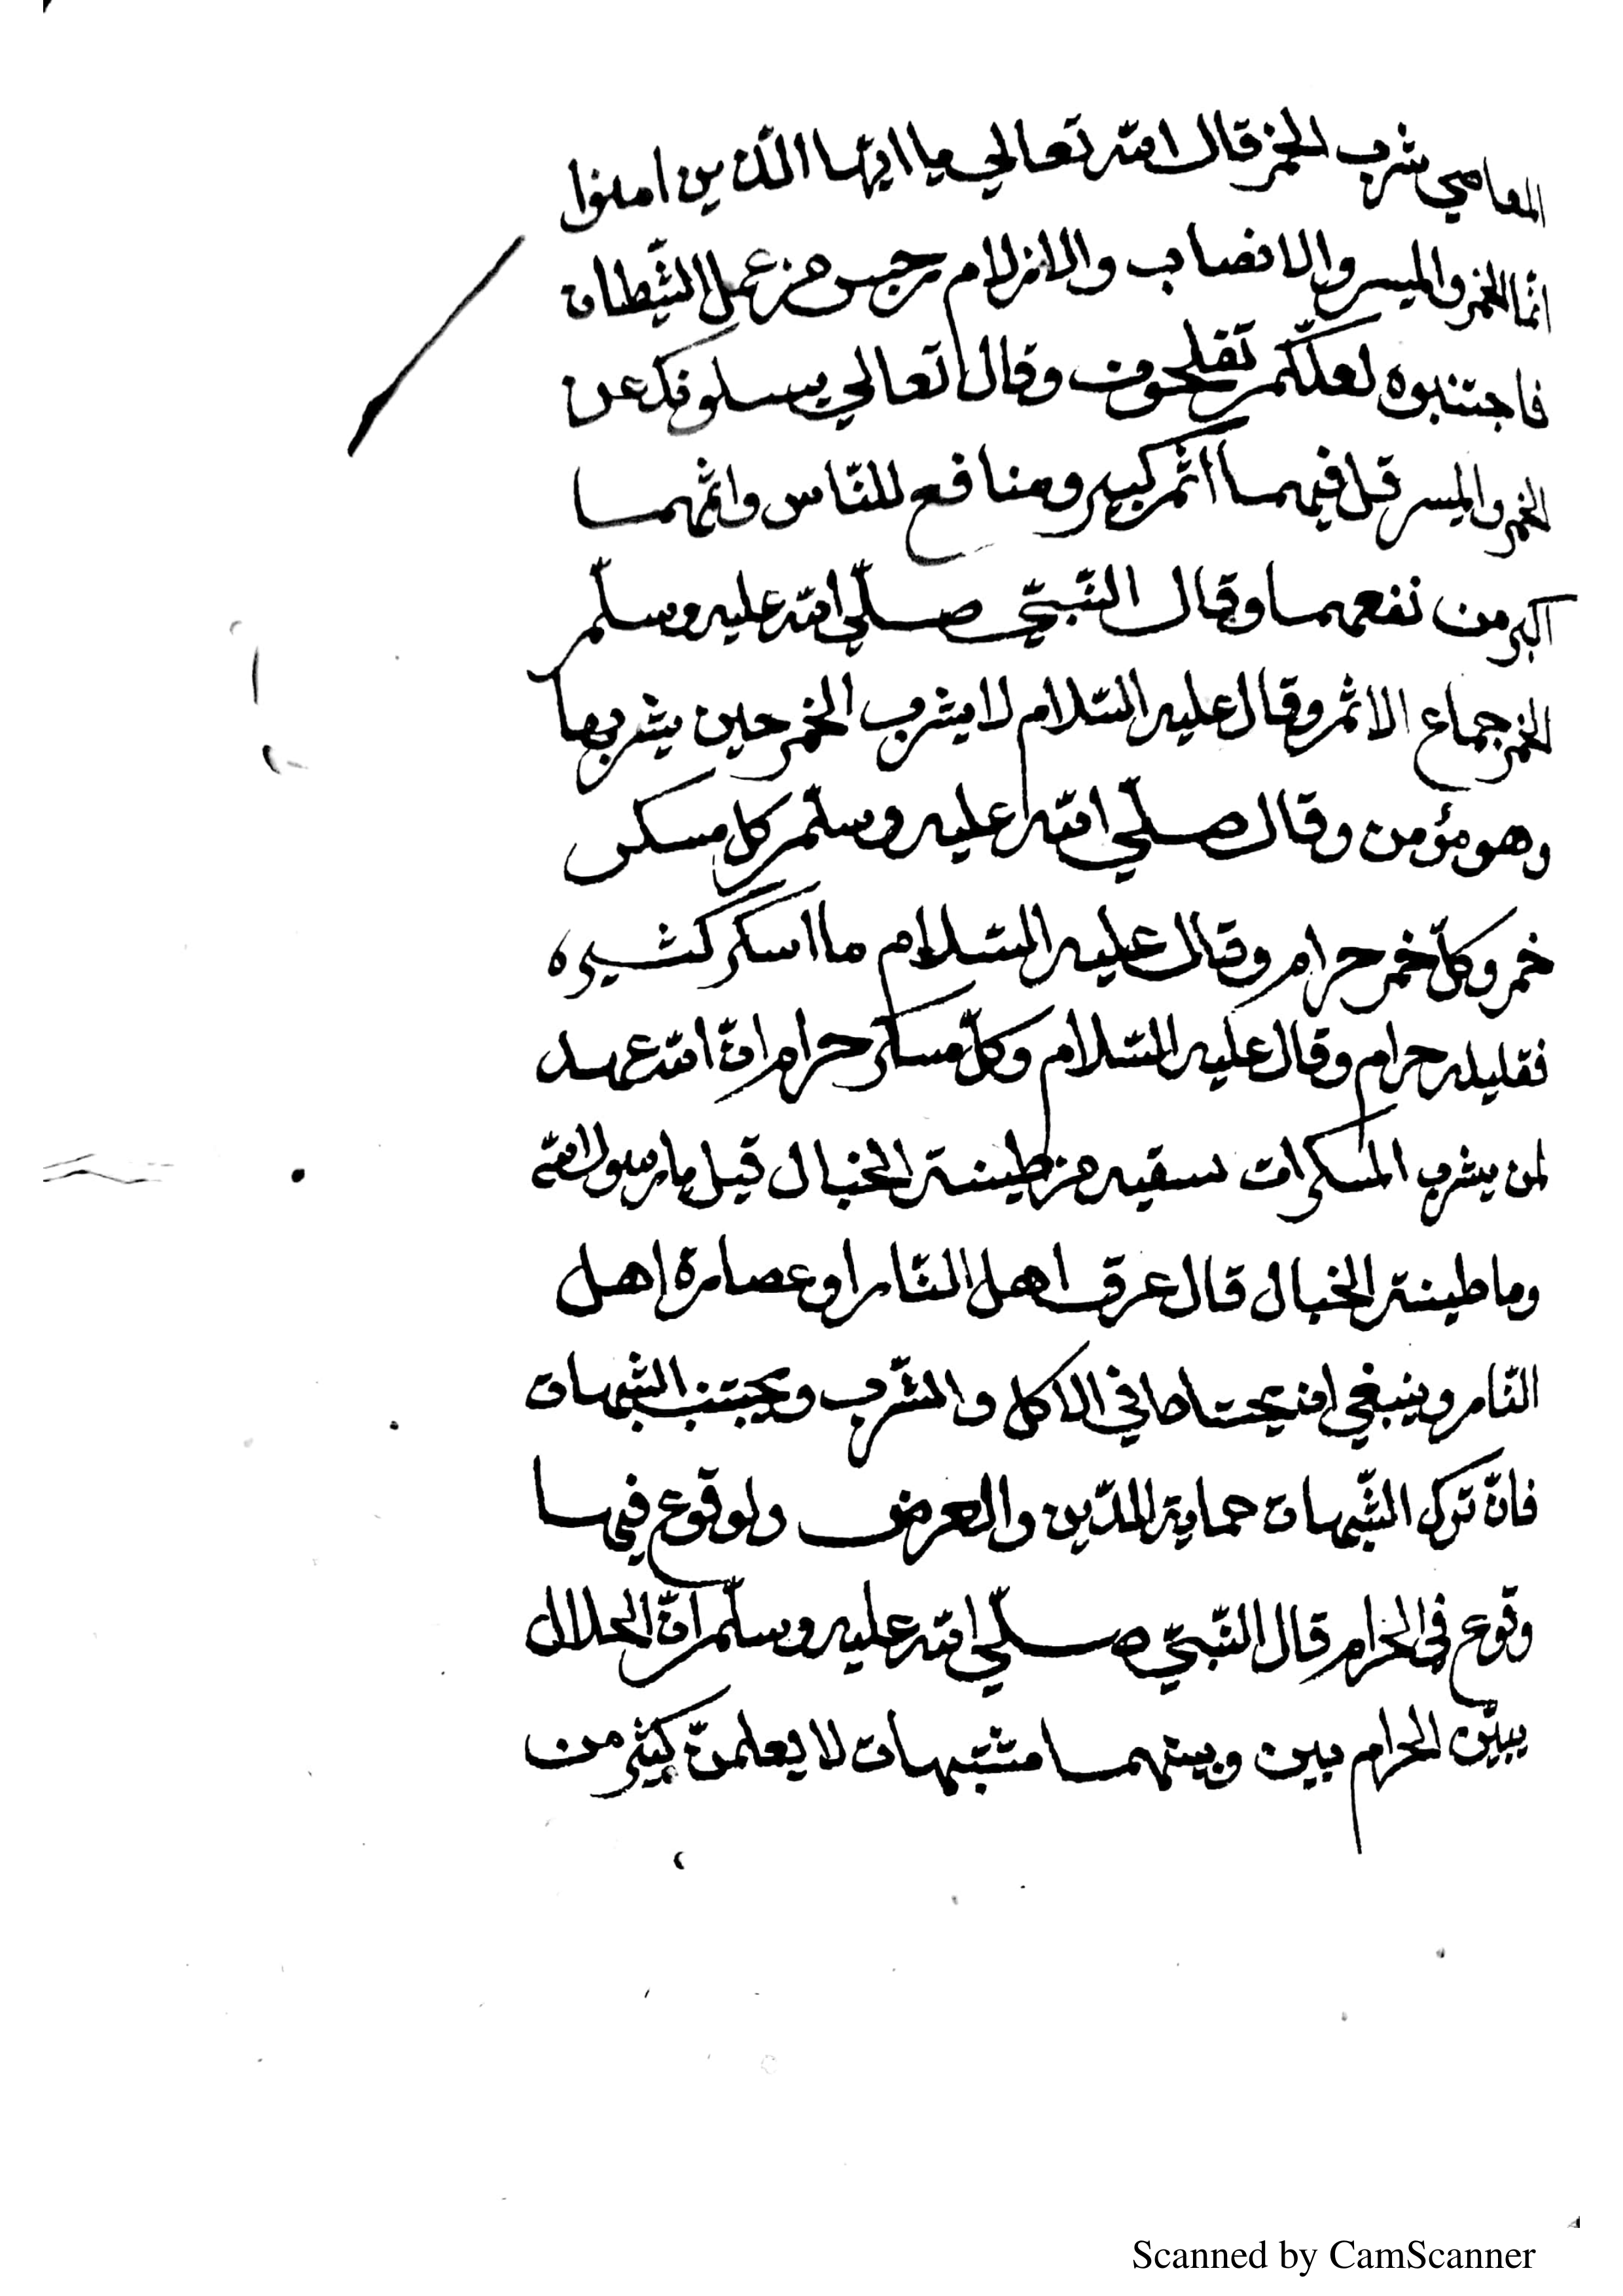 المعاصي شرب الخمر قال الله تعالي يا ايّها الّذين امنوا
انّما الخمر والميسر والانصاب والازلام رجس من عمل الشّيطان
فاجتنبوه لعلّكم تفلحون وقال تعالي يسلونك عن
الخمر والميسر قل فيهما اثم كبير ومنافع للنّاس واثمهما
اكبر من نفعهما وقال النّبيّ صلّي الله عليه وسلّم
الخمر جماع الاثم وقال عليه السّلام لا يشرب الخمر حين يشربها
وهو مؤمن وقال صلّي الله عليه وسلّم كل مسكر
خمر وكلّ خمر حرام وقال عليه السّلام ما اسكر كثيره
فقليله حرام وقال عليه السّلام وكلّ مسكر حرام انّ الله عهد
لمن يشرب المسكرات سقيه من طينة الخبال قيل يا رسول الله
وما طينة الخبال قال عرق اهل النّار او عصارة اهل
النّار وينبغي ان يحتاط في الاكل والشّرب ويجتنب الشّبهات
فانّ ترك الشّبهات حماية للدّين والعرض ولوقوع فيها
وقوع في الحرام قال النّبيّ صلّي الله عليه وسلّم انّ الحلال
بيّن الحرام بين وبينهما مشتبهات لا يعلمنّ كثير من
Scanned by CamScanner